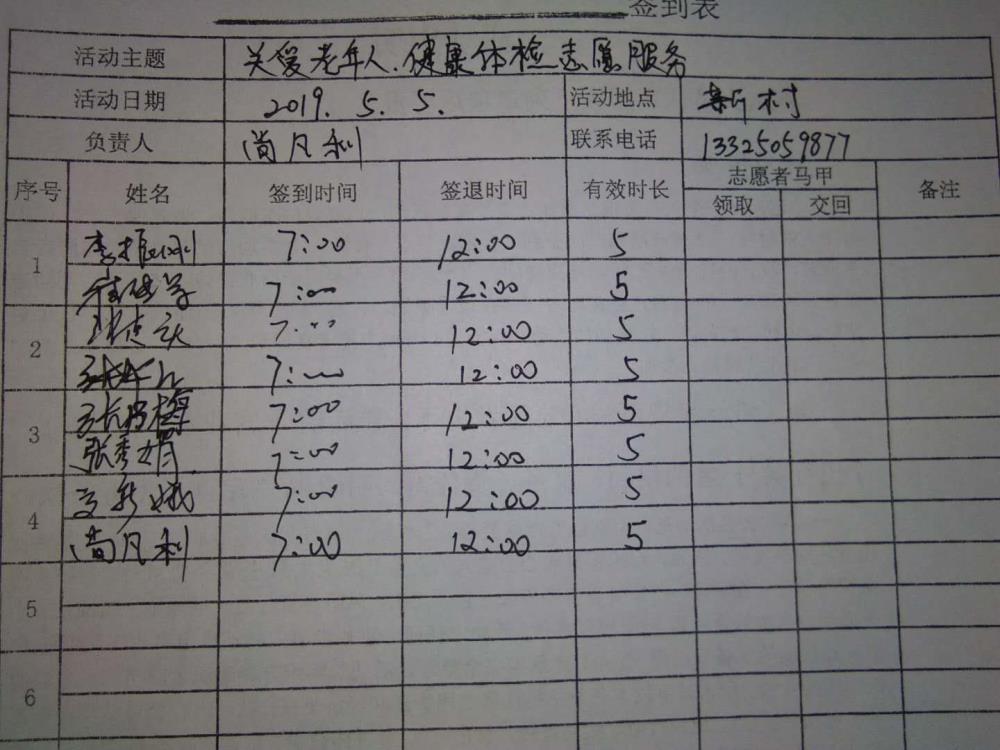 签到表
活动主题 关爱老年人.健康体检志愿服务
活动日期 2019. 5. 5. 活动地点 新村
负责人 尚凡利 联系电话 13325059877
序号 姓名 签到时间 签退时间 有效时长 志愿者马甲 备注
领取 交回
1 李振刚 7:00 12:00 5
7:00 12:00 5
2 7:00 12:00 5
7:00 12:00 5
3 7:00 12:00 5
张秀娟 7:00 12:00 5
4 7:00 12:00 5
尚凡利 7:00 12:00 5
5
6